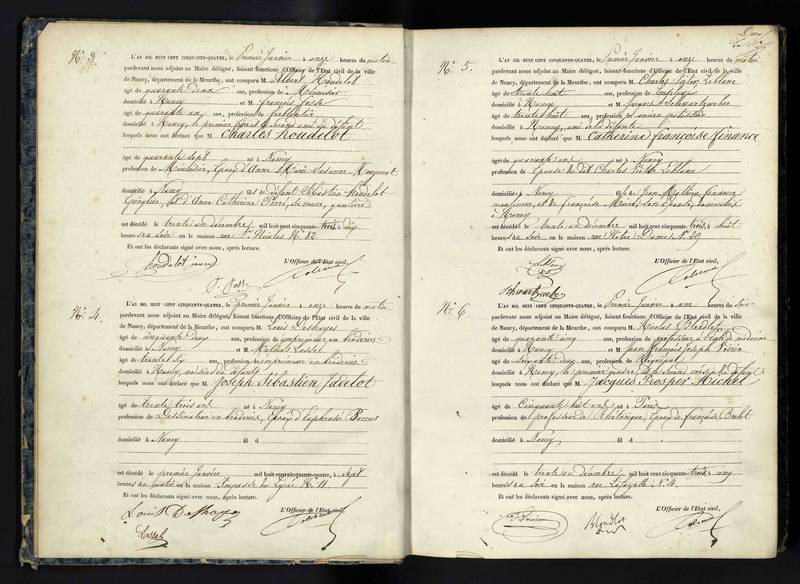 N° 3.
L'AN MIL HUIT CENT CINQUANTE-QUATRE, le premier Janvier à onze heures du matin
pardevant nous adjoint au Maire délégué, faisant fonctions d'Officier de l'Etat civil de la ville
de Nancy, département de la Meurthe, ont comparu M. Albert Houdelot
âgé de quarante deux ans, profession de Menuisier
domicilié à Nancy et M. françois
âgé de quarante un ans, profession de ferblantier
domicilié à Nancy, le premier frère le second ami du défunt
lesquels nous ont déclaré que M. Charles houdelot
âgé de quarante sept né à Nancy
profession de Epoux d'Anne Marie Susanne
domicilié à Nancy fil s de défunt Sébastien Houdelot
et d'Anne Catherine sa veuve,
est décédé le trente un décembre mil huit cent cinquante-trois, à dix
heures du soir en la maison rue St Nicolas N° 82
Et ont les déclarants signé avec nous, après lecture.
L'Officier de l'Etat civil,
houdelot
N° 4.
L'AN MIL HUIT CENT CINQUANTE-QUATRE, le premier Janvier à onze heures du matin
pardevant nous adjoint au Maire délégué, faisant fonctions d'Officier de l'Etat civil de la ville
de Nancy, département de la Meurthe, ont comparu M. Louis Deshayes
âgé de cinquante deux ans, profession de entrepreneur en broderies
domicilié à Nancy et M. Mathias Lassel
âgé de trente six ans, profession entrepreneur en broderies
domicilié à Nancy, voisins du défunt
lesquels nous ont déclaré que M. Joseph Sébastien Jadelot
âgé de trente trois ans né à Nancy
profession de Dessinateur en broderies, époux d'Euphrasie
domicilié à Nancy fil d
est décédé le premier Janvier mil huit cent cinquante-quatre, à sept
heures du matin en la maison Impasse du Lycée N° 11
Et ont les déclarants signé avec nous, après lecture.
L'Officier de l'Etat civil,
Louis Deshayes
Lassel
N° 5.
L'AN MIL HUIT CENT CINQUANTE-QUATRE, le premier Janvier à onze heures du matin
pardevant nous adjoint au Maire délégué, faisant fonctions d'Officier de l'Etat civil de la ville
de Nancy, département de la Meurthe, ont comparu M. Charles Victor Leblanc
âgé de trente huit ans, profession de employé
domicilié à Nancy et M. Jacques Schwartzweber
âgé de trente huit ans, profession de ancien
domicilié à Nancy, ami de la défunte
lesquels nous ont déclaré que M. Catherine françoise finance
âgé de quarante ans né à Nancy
profession de Epouse du dit Charles Victor Leblanc
domicilié à Nancy fille de Jean finance
et de françoise son épouse, domiciliés
à Nancy
est décédé le trente un décembre mil huit cent cinquante-trois, à huit
heures du soir en la maison rue N° 29
Et ont les déclarants signé avec nous, après lecture.
L'Officier de l'Etat civil,
Schwartzweber
N° 6.
L'AN MIL HUIT CENT CINQUANTE-QUATRE, le premier Janvier à une heures du soir
pardevant nous adjoint au Maire délégué, faisant fonctions d'Officier de l'Etat civil de la ville
de Nancy, département de la Meurthe, ont comparu M. Nicolas Blondlot
âgé de quarante cinq ans, profession de professeur à l'école de médecine
domicilié à Nancy et M. Jean françois Joseph Poirson
âgé de soixante deux ans, profession de
domicilié à Nancy, le premier gendre, le second voisin du défunt
lesquels nous ont déclaré que M. Jacques Prosper Michel
âgé de Cinquante huit ans né à Paris
profession de professeur de Rhétorique, époux de françoise
domicilié à Nancy fil d
est décédé le trente un décembre mil huit cent cinquante-trois, à cinq
heures du soir en la maison rue Lafayette N° 4.
Et ont les déclarants signé avec nous, après lecture.
L'Officier de l'Etat civil,
Blondlot